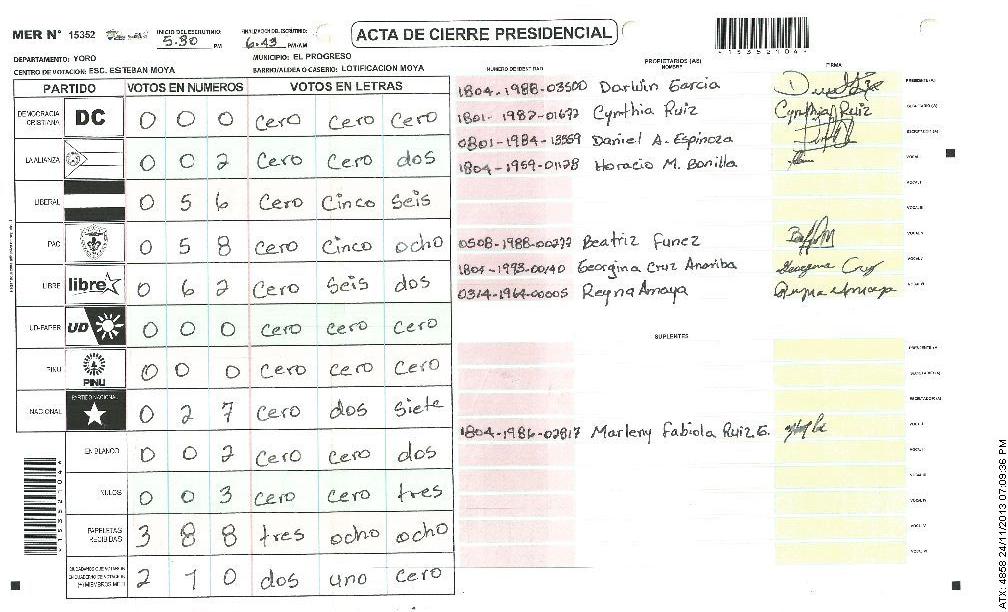 MER N° 15352 INICIO DEL ESCRUTINIO: 5:30 PM FINALIZACION DEL ESCRUTINIO: 6:43 PM/AM ACTA DE CIERRE PRESIDENCIAL
DEPARTAMENTO: YORO MUNICIPIO: EL PROGRESO
CENTRO DE VOTACION: ESC. ESTEBAN MOYA BARRIO/ALDEA O CASERIO: LOTIFICACION MOYA
PARTIDO VOTOS EN NUMEROS VOTOS EN LETRAS
DEMOCRACIA CRISTIANA DC 0 0 0 cero cero cero
LA ALIANZA 0 0 2 cero cero dos
LIBERAL 0 5 6 cero cinco seis
PAC 0 5 8 cero cinco ocho
LIBRE libre 0 6 2 cero seis dos
UD-FAPER UD 0 0 0 cero cero cero
PINU PINU 0 0 0 cero cero cero
NACIONAL PARTIDO NACIONAL 0 2 7 cero dos siete
EN BLANCO 0 0 2 cero cero dos
NULOS 0 0 3 cero cero tres
PAPELETAS RECIBIDAS 3 8 8 tres ocho ocho
CIUDADANOS QUE VOTARON EN CUADERNO DE VOTACION (+) MIEMBROS MER 2 1 0 dos uno cero
PROPIETARIOS (AS)
NUMERO DE IDENTIDAD NOMBRE FIRMA
1804-1988-03500 Darwin Garcia PRESIDENTE(A)
1801-1987-01672 Cynthia Ruiz Cynthia Ruiz
0801-1984-13559 Daniel A. Espinoza
1804-1959-01128 Horacio M. Bonilla
0508-1988-00277 Beatriz Funez
1804-1993-00140 Georgina Cruz Anariba Georgina Cruz
0314-1964-00005 Reyna Amaya Reyna Amaya
SUPLENTES
PRESIDENTE(A)
SECRETARIO(A)
ESCRUTADOR(A)
1804-1986-02817 Marleny Fabiola Ruiz E.
ATX: 4858 24/11/2013 07:09:36 PM